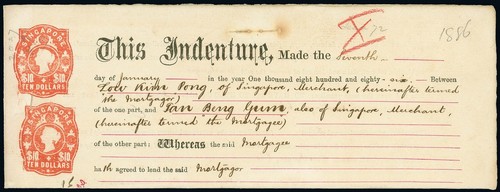 1886
SINGAPORE
$10 $10
TEN DOLLARS
SINGAPORE
$10 $10
TEN DOLLARS
This Indenture, Made the Seventh
day of January in the year One thousand eight hundred and eighty-six. Between
Low Kim Pong, of Singapore, Merchant, (hereinafter termed
the Mortgagor)
of the one part, and Tan Beng Gum, also of Singapore, Merchant,
(hereinafter termed the Mortgagee)
of the other part: Whereas the said Mortgagee
hath agreed to lend the said Mortgagor